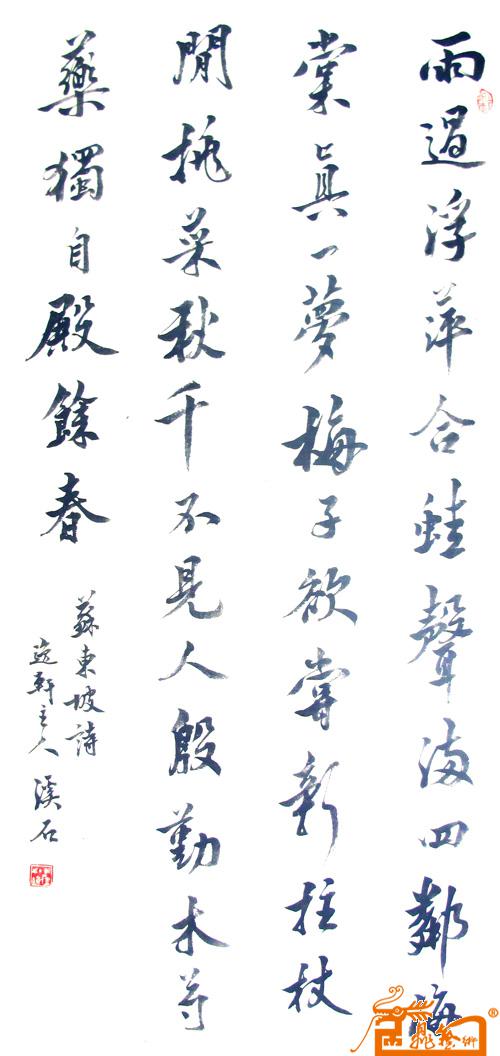 雨過浮萍合蛙聲滿四鄰海
棠眞一夢梅子欲嘗新拄杖
閒挑菜秋千不見人殷勤木芍
藥獨自殿餘春
蘇東坡詩
逸軒主人溪石